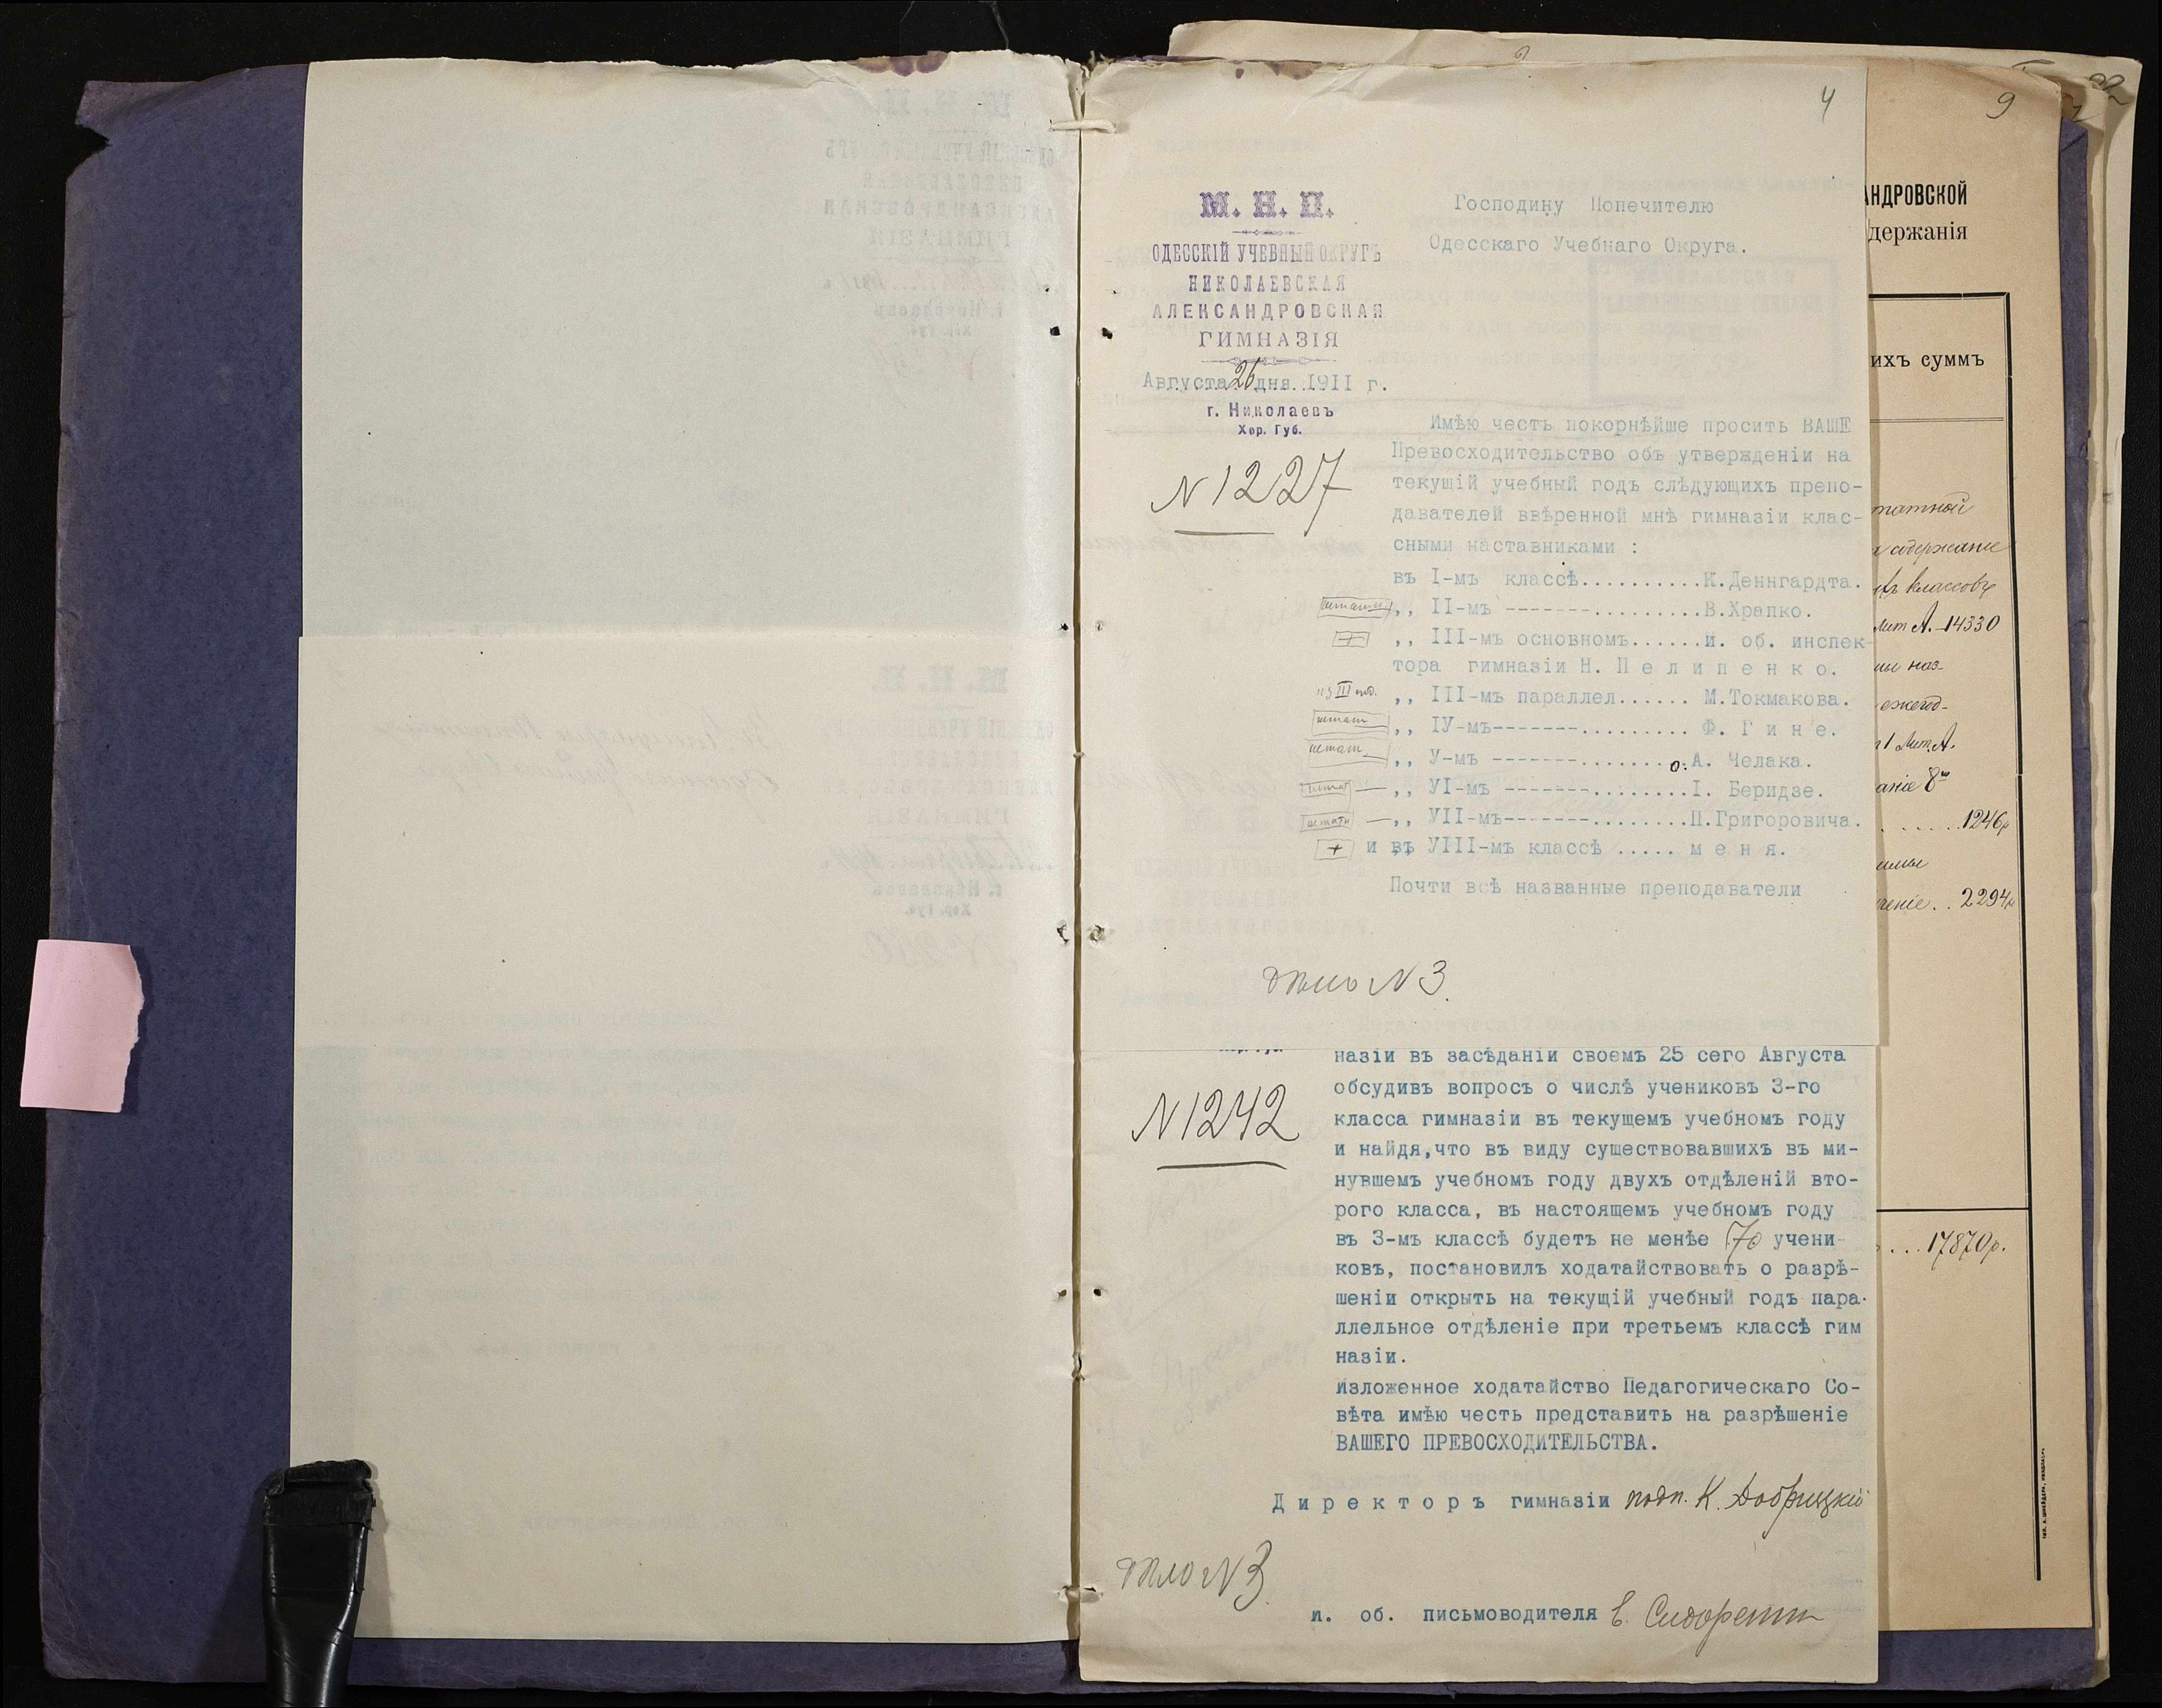 4
М. Н. П.
ОДЕССКІЙ УЧЕБНЫЙ ОКРУГЪ
НИКОЛАЕВСКАЯ
АЛЕКСАНДРОВСКАЯ
ГИМНАЗІЯ
Августа 26 дня 1911 г.
г. Николаевъ
Хер. Губ.
N 1227
Господину Попечителю
Одесскаго Учебнаго Округа.
Имѣю честь покорнѣйше просить ВАШЕ
Превосходительство объ утвержденіи на
текущій учебный годъ слѣдующихъ препо-
давателей ввѣренной мнѣ гимназіи клас-
сными наставниками :
въ I-мъ классѣ..........К.Деннгардта.
,, II-мъ -------.........В.Храпко.
+ ,, III-мъ основномъ......и. об. инспек-
тора гимназіи Н. П е л и п е н к о.
,, III-мъ параллел....... М.Токмакова.
штат ,, IУ-мъ-------......... Ф. Г и н е.
штат ,, У-мъ -------........о.А. Челака.
штат — ,, УI-мъ -------.........I. Беридзе.
штатн — ,, УII-мъ-------........П.Григоровича.
+ и въ УIII-мъ классѣ ..... м е н я.
Почти всѣ названные преподаватели
дѣло N 3.
N 1242
назіи въ засѣданіи своемъ 25 сего Августа
обсудивъ вопросъ о числѣ учениковъ 3-го
класса гимназіи въ текущемъ учебномъ году
и найдя,что въ виду существовавшихъ въ ми-
нувшемъ учебномъ году двухъ отдѣленій вто-
рого класса, въ настоящемъ учебномъ году
въ 3-мъ классѣ будетъ не менѣе 70 учени-
ковъ, постановилъ ходатайствовать о разрѣ-
шеніи открыть на текущій учебный годъ пара-
ллельное отдѣленіе при третьемъ классѣ гим
назіи.
Изложенное ходатайство Педагогическаго Со-
вѣта имѣю честь представить на разрѣшеніе
ВАШЕГО ПРЕВОСХОДИТЕЛЬСТВА.
Д и р е к т о р ъ гимназіи подп. К. Добрицкій
дѣло N 3.
и. об. письмоводителя
9
АНДРОВСКОЙ
держанія
ихъ суммъ
татной
содержание
классовъ
Лит А. 14330
наз-
ежегод-
Лит. А.
аніе 8го
......1246р
ченіе.. 2294р
...17870р.